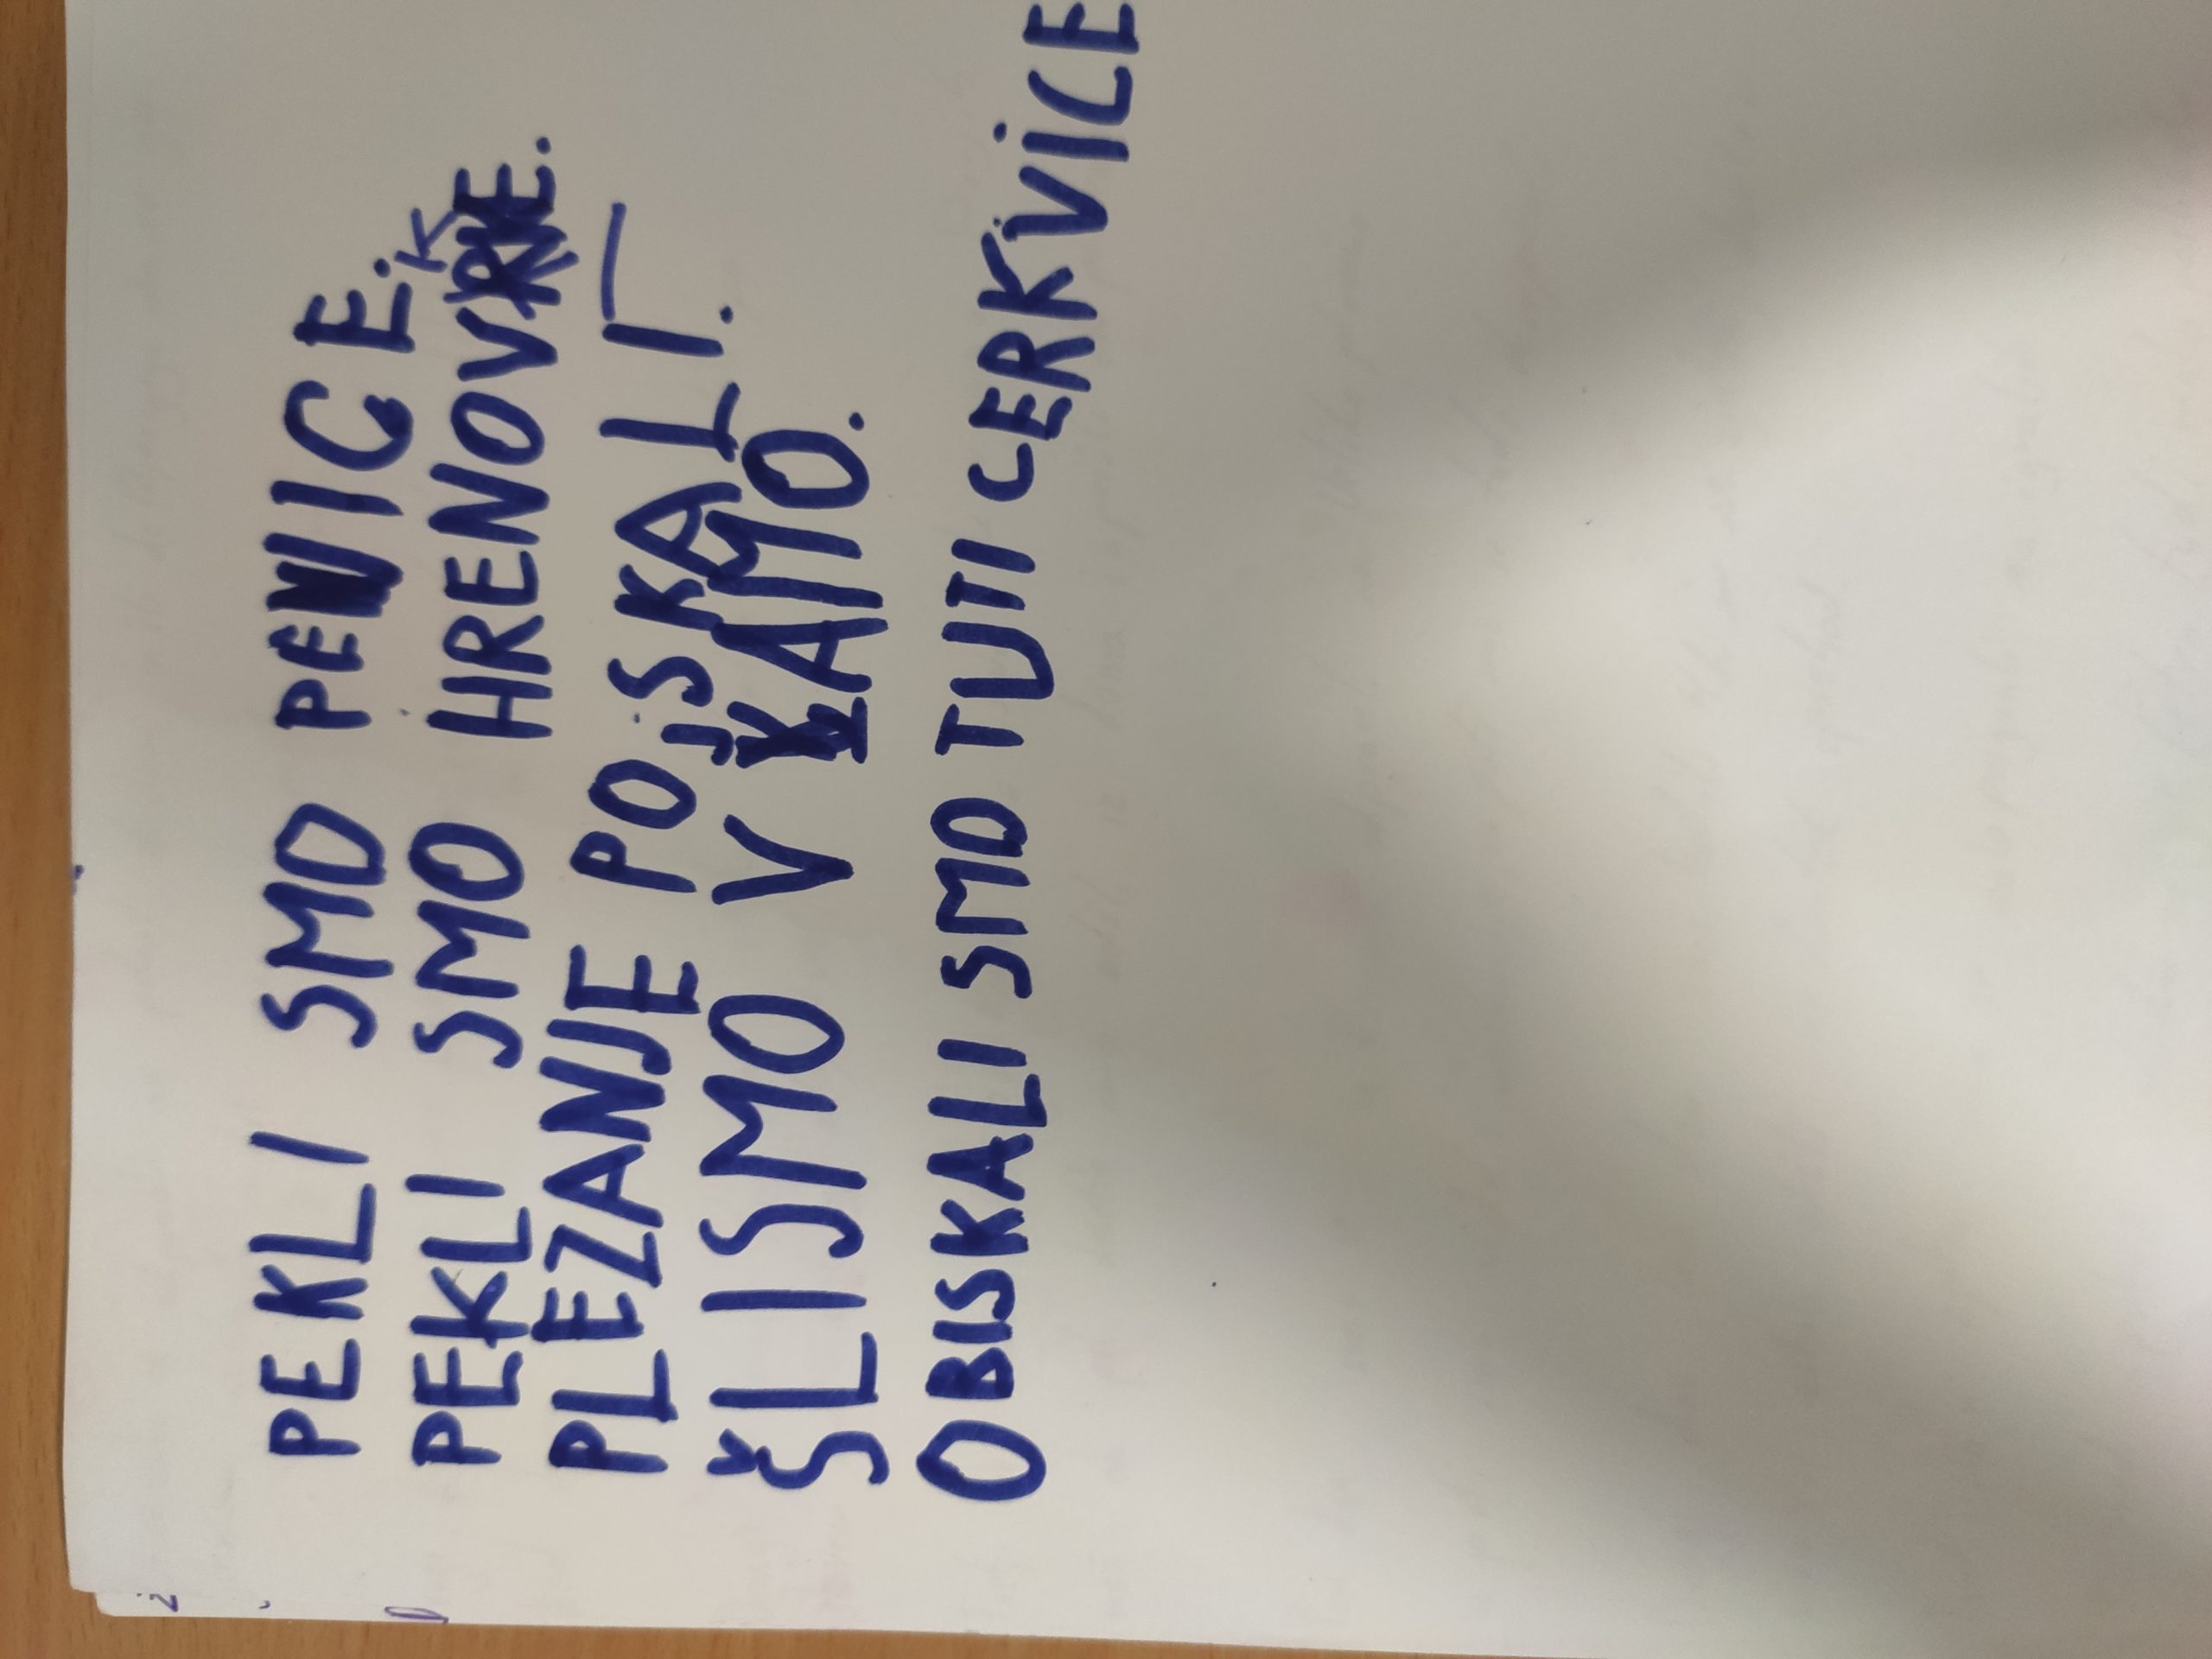 PEKLI SMO PENICE.
PEKLI SMO HRENOVKE.
PLEZANJE POJSKALI.
ŠLISMO V JAMO.
OBISKALI SMO TUTI CERKVICE